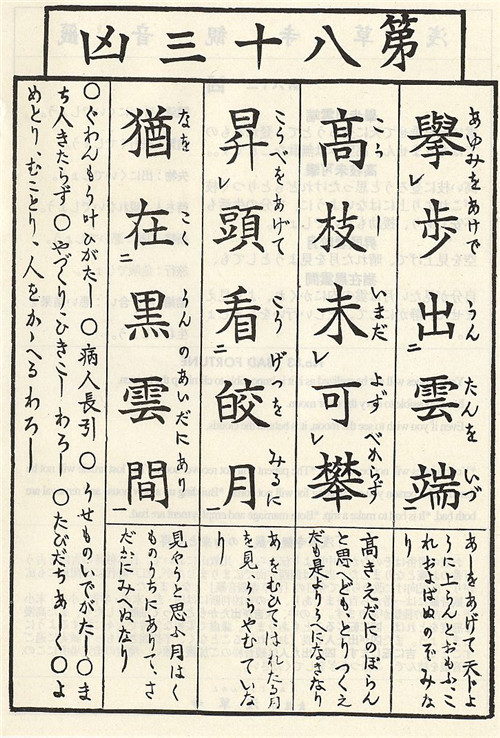 第八十三凶
あゆみをあげて うんたんを いづ
擧レ歩出ニ雲端
いまだ よず べからず
高枝未レ可レ攀
こうべをあげて こうげを みるに
昇レ頭看ニ皎月
なを こく うんのあいだにあり
猶在ニ黒雲間一
あしをあげて天上
とおもふ、こ
れおよばぬのぞみな
り
高きえだにのぼらん
と思へども、とりつくえ
だも是より なきなり
あをむひてはれたる月
を見 ていな
り
見やうと思ふ月はく
ものうちにありて、さ
だかにみへぬなり
○ぐわんもう叶ひがたし ○病人長引 ○うせものいでがたし ○ま
ち人きたらず ○やづくり、ひきこし わろし ○たびだちあし ○よ
めとり、むことり、人をかゝへる わろし